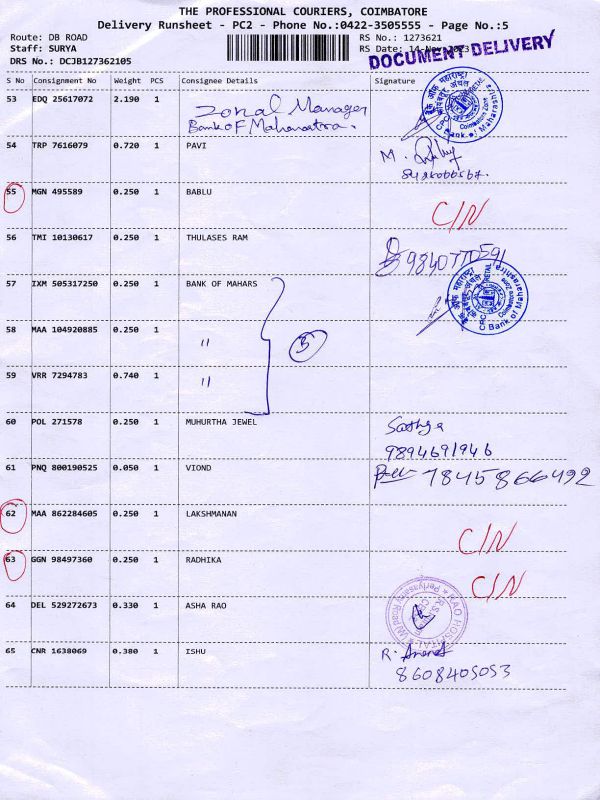 THE PROFESSIONAL COURIERS, COIMBATORE
Delivery Runsheet - PC2 - Phone No.:0422-3505555 - Page No.:5
Route: DB ROAD RS No.: 1273621
Staff: SURYA RS Date: 14-Nov-2023
DRS No.: DCJB127362105 DOCUMENT DELIVERY
S No Consignment No Weight PCS Consignee Details Signature
53 EDQ 25617072 2.190 1 Zonal Manager
Bank OF Maharastra.
54 TRP 7616079 0.720 1 PAVI M.
55 MGN 495589 0.250 1 BABLU C/N
56 TMI 10130617 0.250 1 THULASES RAM 9840770591
57 IXM 505317250 0.250 1 BANK OF MAHARS
58 MAA 104920885 0.250 1 " 3
59 VRR 7294783 0.740 1 "
60 POL 271578 0.250 1 MUHURTHA JEWEL Sathya
9894691946
61 PNQ 800190525 0.050 1 VIOND 7845866492
62 MAA 862284605 0.250 1 LAKSHMANAN C/N
63 GGN 98497360 0.250 1 RADHIKA C/N
64 DEL 529272673 0.330 1 ASHA RAO RAO HOSPITAL
65 CNR 1638069 0.380 1 ISHU R. Anand
8608405053